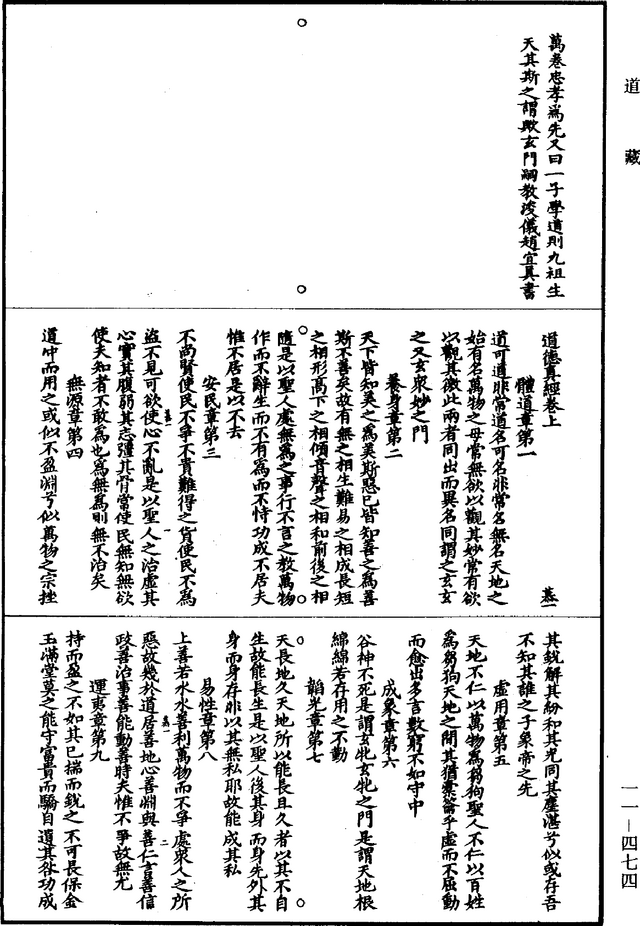 道藏
萬卷忠孝為先又曰一子學道則九祖生
天其斯之謂歟玄門嗣教浚儀趙宜真書
道德真經卷上
體道章第一
道可道非常道名可名非常名無名天地之
始有名萬物之母常無欲以觀其妙常有欲
以觀其徼此兩者同出而異名同謂之玄玄
之又玄衆妙之門
養身章第二
天下皆知美之為美斯惡已皆知善之為善
斯不善矣故有無之相生難易之相成長短
之相形高下之相傾音聲之相和前後之相
隨是以聖人處無為之事行不言之教萬物
作而不辭生而不有為而不恃功成不居夫
惟不居是以不去
安民章第三
不尚賢使民不爭不貴難得之貨使民不為
盜不見可欲使心不亂是以聖人之治虛其
心實其腹弱其志彊其骨常使民無知無欲
使夫知者不敢為也為無為則無不治矣
無源章第四
道冲而用之或似不盈淵兮似萬物之宗挫
其銳解其紛和其光同其塵湛兮似或存吾
不知其誰之子象帝之先
虛用章第五
天地不仁以萬物為芻狗聖人不仁以百姓
為芻狗天地之間其猶橐籥乎虛而不屈動
而愈出多言數窮不如守中
成象章第六
谷神不死是謂玄牝玄牝之門是謂天地根
綿綿若存用之不勤
韜光章第七
天長地久天地所以能長且久者以其不自
生故能長生是以聖人後其身而身先外其
身而身存非以其無私耶故能成其私
易性章第八
上善若水水善利萬物而不爭處衆人之所
惡故幾於道居善地心善淵與善仁言善信
政善治事善能動善時夫惟不爭故無尤
運夷章第九
持而盈之不如其已揣而銳之不可長保金
玉滿堂莫之能守富貴而驕自遺其咎功成
一一—四七四